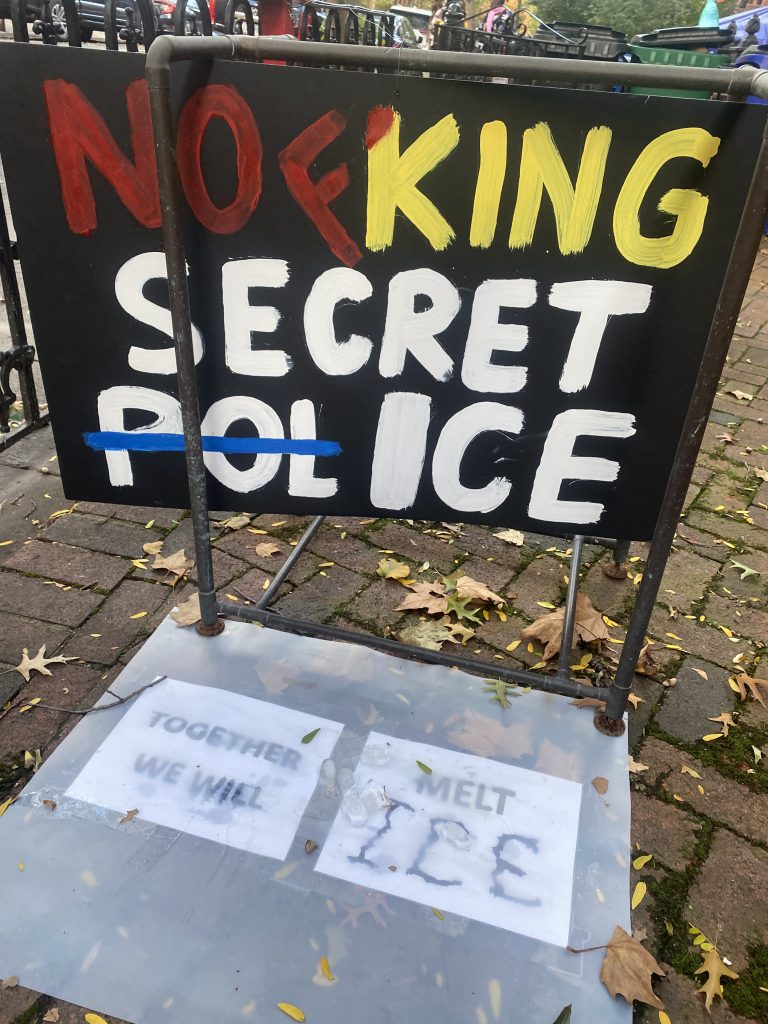 NO FKING
SECRET
POLICE
TOGETHER
WE WILL
MELT
ICE